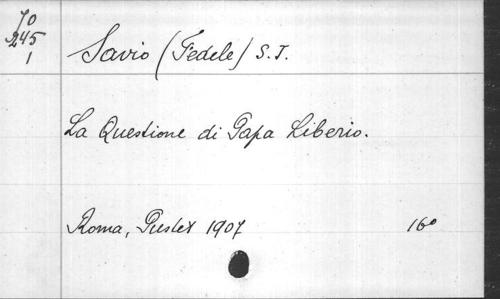 70
245
1
Savio (Fedele) S.J.
La Questione di Papa Liberio.
Roma, Pustet 1907 16°